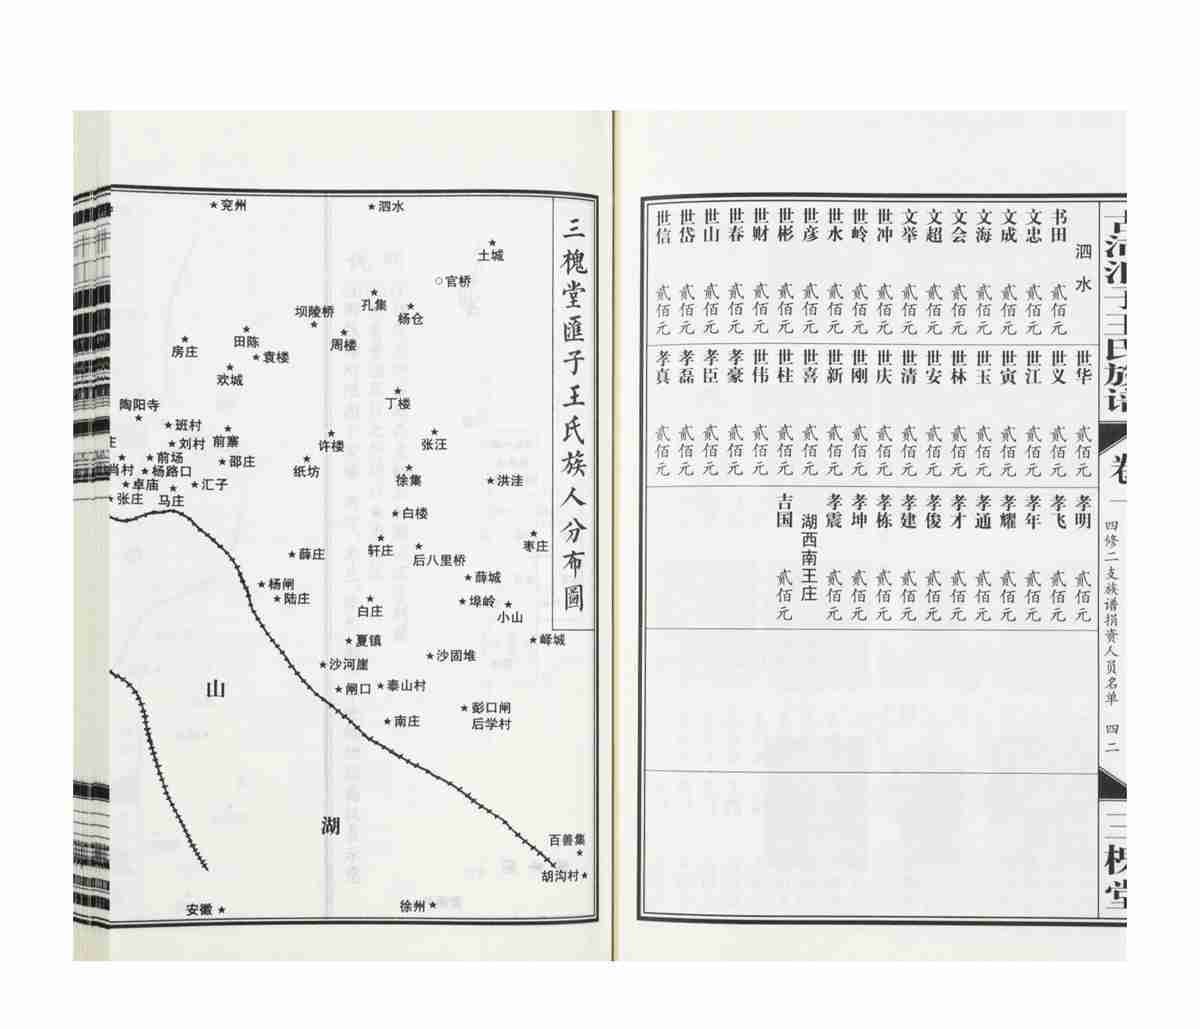 三槐堂匯子王氏族人分布圖
兖州
泗水
土城
官桥
孔集
杨仓
坝陵桥
周楼
田陈
房庄
袁楼
欢城
丁楼
陶阳寺
班村
刘村
前寨
许楼
张汪
庄
肖村
前场
杨路口
邵庄
纸坊
徐集
洪洼
卓庙
汇子
张庄
马庄
白楼
枣庄
薛庄
轩庄
后八里桥
杨闸
薛城
陆庄
白庄
埠岭
小山
夏镇
峄城
沙河崖
沙固堆
山
闸口
泰山村
南庄
彭口闸
后学村
湖
百善集
胡沟村
安徽
徐州
王氏族谱
卷
一
四修二支族谱捐资人员名单
四二
三槐堂
泗水
书田 贰佰元
文忠 贰佰元
文成 贰佰元
文海 贰佰元
文会 贰佰元
文超 贰佰元
文举 贰佰元
世冲 贰佰元
世岭 贰佰元
世水 贰佰元
世彦 贰佰元
世彬 贰佰元
世财 贰佰元
世春 贰佰元
世山 贰佰元
世岱 贰佰元
世信 贰佰元
世华 贰佰元
世义 贰佰元
世江 贰佰元
世寅 贰佰元
世玉 贰佰元
世林 贰佰元
世安 贰佰元
世清 贰佰元
世庆 贰佰元
世刚 贰佰元
世新 贰佰元
世喜 贰佰元
世柱 贰佰元
世伟 贰佰元
孝豪 贰佰元
孝臣 贰佰元
孝磊 贰佰元
孝真 贰佰元
孝明 贰佰元
孝飞 贰佰元
孝年 贰佰元
孝耀 贰佰元
孝通 贰佰元
孝才 贰佰元
孝俊 贰佰元
孝建 贰佰元
孝栋 贰佰元
孝坤 贰佰元
孝震 贰佰元
湖西南王庄
吉国 贰佰元